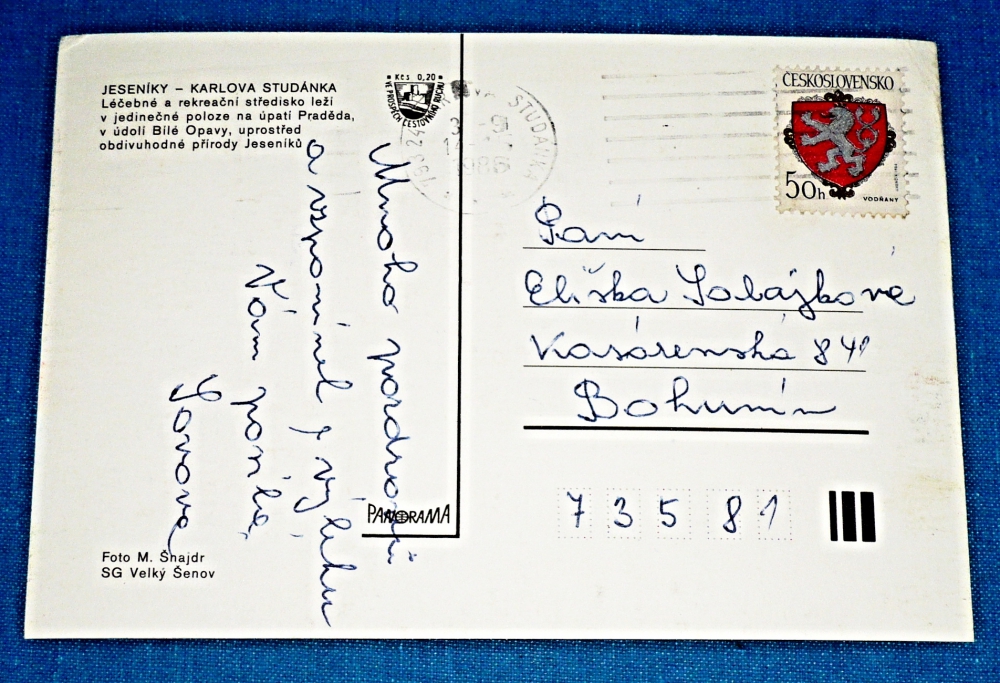 JESENÍKY – KARLOVA STUDÁNKA
Léčebné a rekreační středisko leží
v jedinečné poloze na úpatí Praděda,
v údolí Bílé Opavy, uprostřed
obdivuhodné přírody Jeseníků
Kčs 0,20
VE PROSPĚCH CESTOVNÍHO RUCHU
STUDÁNKA
1986
ČESKOSLOVENSKO
50h
VODŇANY
Mnoho pozdravů
a vzpomínek z výletu
Vám posílá
Paní
Eliška
Kasárenská 841
Bohumín
735 81
PANORAMA
Foto M. Šnajdr
SG Velký Šenov